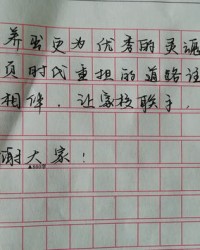 养出更为优秀的灵魂
负时代重担的道路注
相伴，让家校联手，
谢大家！